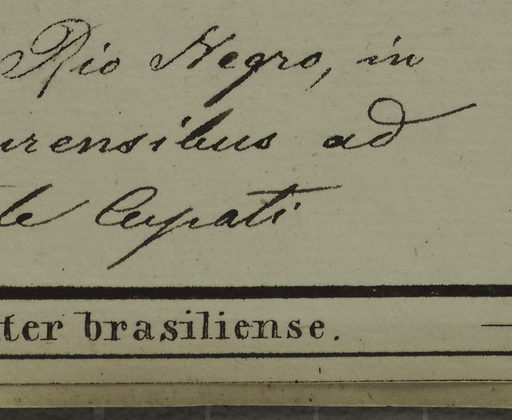 Rio Negro, in
urensibus ad
te Cupati
ter brasiliense.